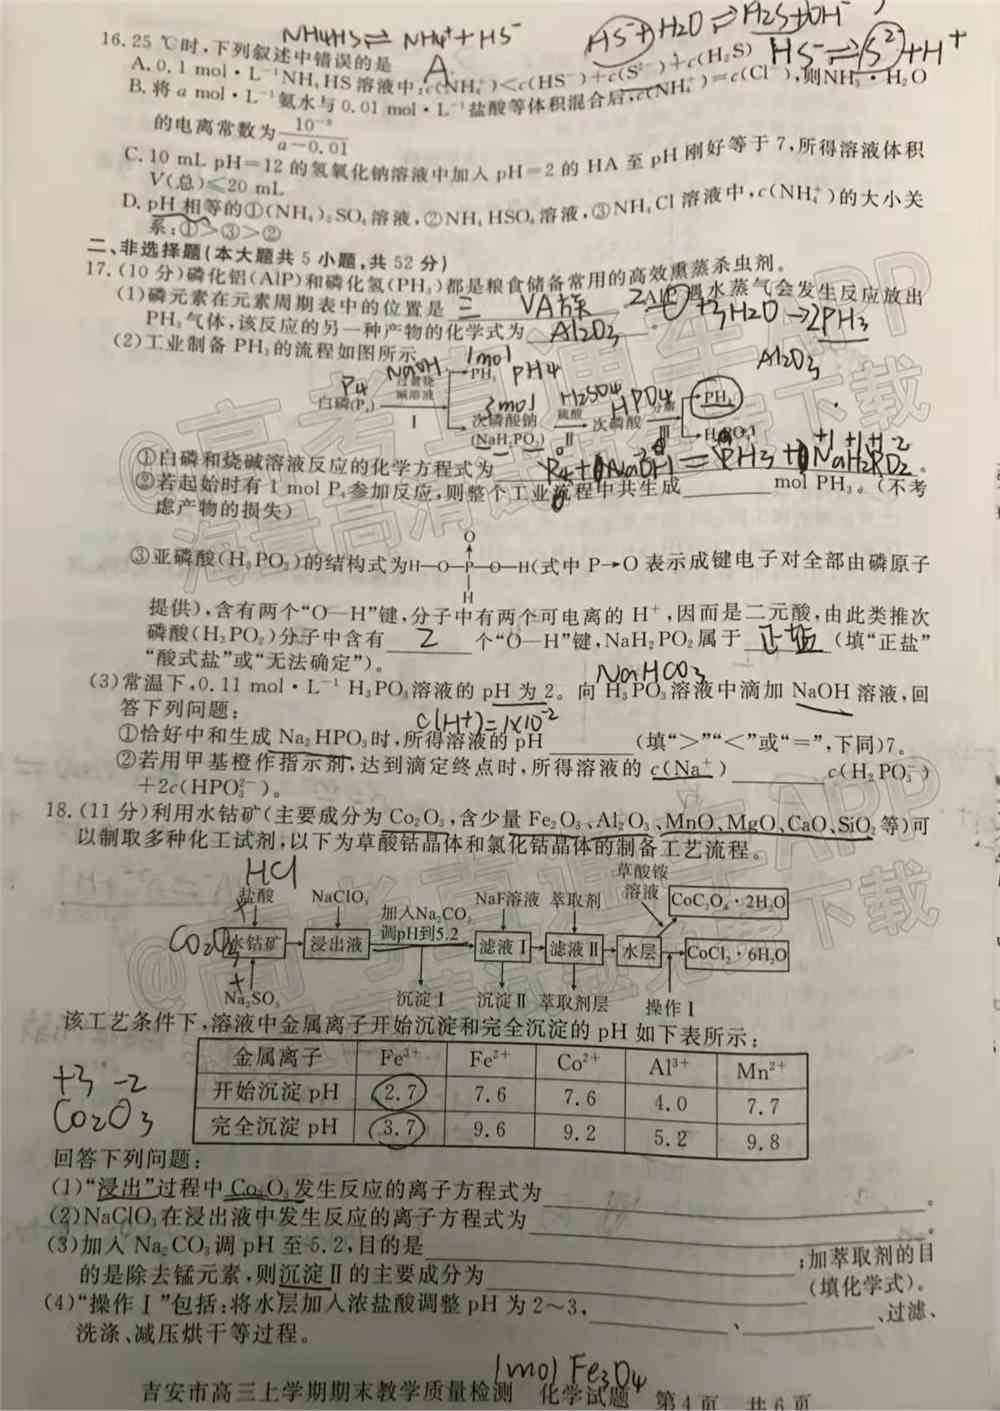 NH4HS⇌NH4⁺+HS⁻
HS⁻+H2O⇌H2S+OH⁻
HS⁻⇌S²⁻+H⁺
16.25 ℃时,下列叙述中错误的是 A
A.0.1 mol·L⁻¹NH₄HS溶液中:c(NH₄⁺)<c(HS⁻)+c(S²⁻)+c(H₂S)
B.将a mol·L⁻¹氨水与0.01 mol·L⁻¹盐酸等体积混合后,c(NH₄⁺)=c(Cl⁻),则NH₃·H₂O
的电离常数为10⁻⁹/(a-0.01)
C.10 mL pH=12的氢氧化钠溶液中加入pH=2的HA至pH刚好等于7,所得溶液体积
V(总)≤20 mL
D.pH相等的①(NH₄)₂SO₄溶液,②NH₄HSO₄溶液,③NH₄Cl溶液中,c(NH₄⁺)的大小关
系:①>③>②
二、非选择题(本大题共5小题,共52分)
17.(10分)磷化铝(AlP)和磷化氢(PH₃)都是粮食储备常用的高效熏蒸杀虫剂。
(1)磷元素在元素周期表中的位置是 三 VA族 遇水蒸气会发生反应放出
+3H2O→2PH3
PH₃气体,该反应的另一种产物的化学式为 Al2O3
Al2O3
(2)工业制备PH₃的流程如图所示
P4 NaOH 1mol PH4
白磷(P₄) 过量烧碱溶液 Ⅰ PH₃
3mol H2SO4 HPO4
次磷酸钠(NaH₂PO₂) 硫酸 Ⅱ 次磷酸 分解 Ⅲ PH₃
①白磷和烧碱溶液反应的化学方程式为 P4+NaOH=PH3+NaH2PO2。
②若起始时有1 mol P₄参加反应,则整个工业流程中共生成 mol PH₃。(不考
虑产物的损失)
③亚磷酸(H₃PO₃)的结构式为H—O—P—O—H(式中P→O表示成键电子对全部由磷原子
O
H
提供),含有两个“O—H”键,分子中有两个可电离的H⁺,因而是二元酸,由此类推次
磷酸(H₃PO₂)分子中含有 2 个“O—H”键,NaH₂PO₂属于 正盐 (填“正盐”
“酸式盐”或“无法确定”)。
NaHCO3
(3)常温下,0.11 mol·L⁻¹ H₃PO₃溶液的pH为2。向H₃PO₃溶液中滴加NaOH溶液,回
答下列问题:
c(H⁺)=1×10⁻²
①恰好中和生成Na₂HPO₃时,所得溶液的pH (填“>”“<”或“=”,下同)7。
②若用甲基橙作指示剂,达到滴定终点时,所得溶液的c(Na⁺) c(H₂PO₃⁻)
+2c(HPO₃²⁻)。
18.(11分)利用水钴矿(主要成分为Co₂O₃,含少量Fe₂O₃、Al₂O₃、MnO、MgO、CaO、SiO₂等)可
以制取多种化工试剂,以下为草酸钴晶体和氯化钴晶体的制备工艺流程。
HCl
盐酸 NaClO₃ 加入Na₂CO₃ 调pH到5.2 NaF溶液 萃取剂 草酸铵溶液 CoC₂O₄·2H₂O
Co2O3 水钴矿 浸出液 滤液Ⅰ 滤液Ⅱ 水层 CoCl₂·6H₂O
Na₂SO₃ 沉淀Ⅰ 沉淀Ⅱ 萃取剂层 操作Ⅰ
该工艺条件下,溶液中金属离子开始沉淀和完全沉淀的pH如下表所示:
金属离子 Fe³⁺ Fe²⁺ Co²⁺ Al³⁺ Mn²⁺
开始沉淀pH 2.7 7.6 7.6 4.0 7.7
完全沉淀pH 3.7 9.6 9.2 5.2 9.8
+3 -2
Co2O3
回答下列问题:
(1)“浸出”过程中Co₂O₃发生反应的离子方程式为 。
(2)NaClO₃在浸出液中发生反应的离子方程式为 。
(3)加入Na₂CO₃调pH至5.2,目的是 ;加萃取剂的目
的是除去锰元素,则沉淀Ⅱ的主要成分为 (填化学式)。
(4)“操作Ⅰ”包括:将水层加入浓盐酸调整pH为2～3, 、 、过滤、
洗涤、减压烘干等过程。
1mol Fe3O4
吉安市高三上学期期末教学质量检测 化学试题 第4页 共6页